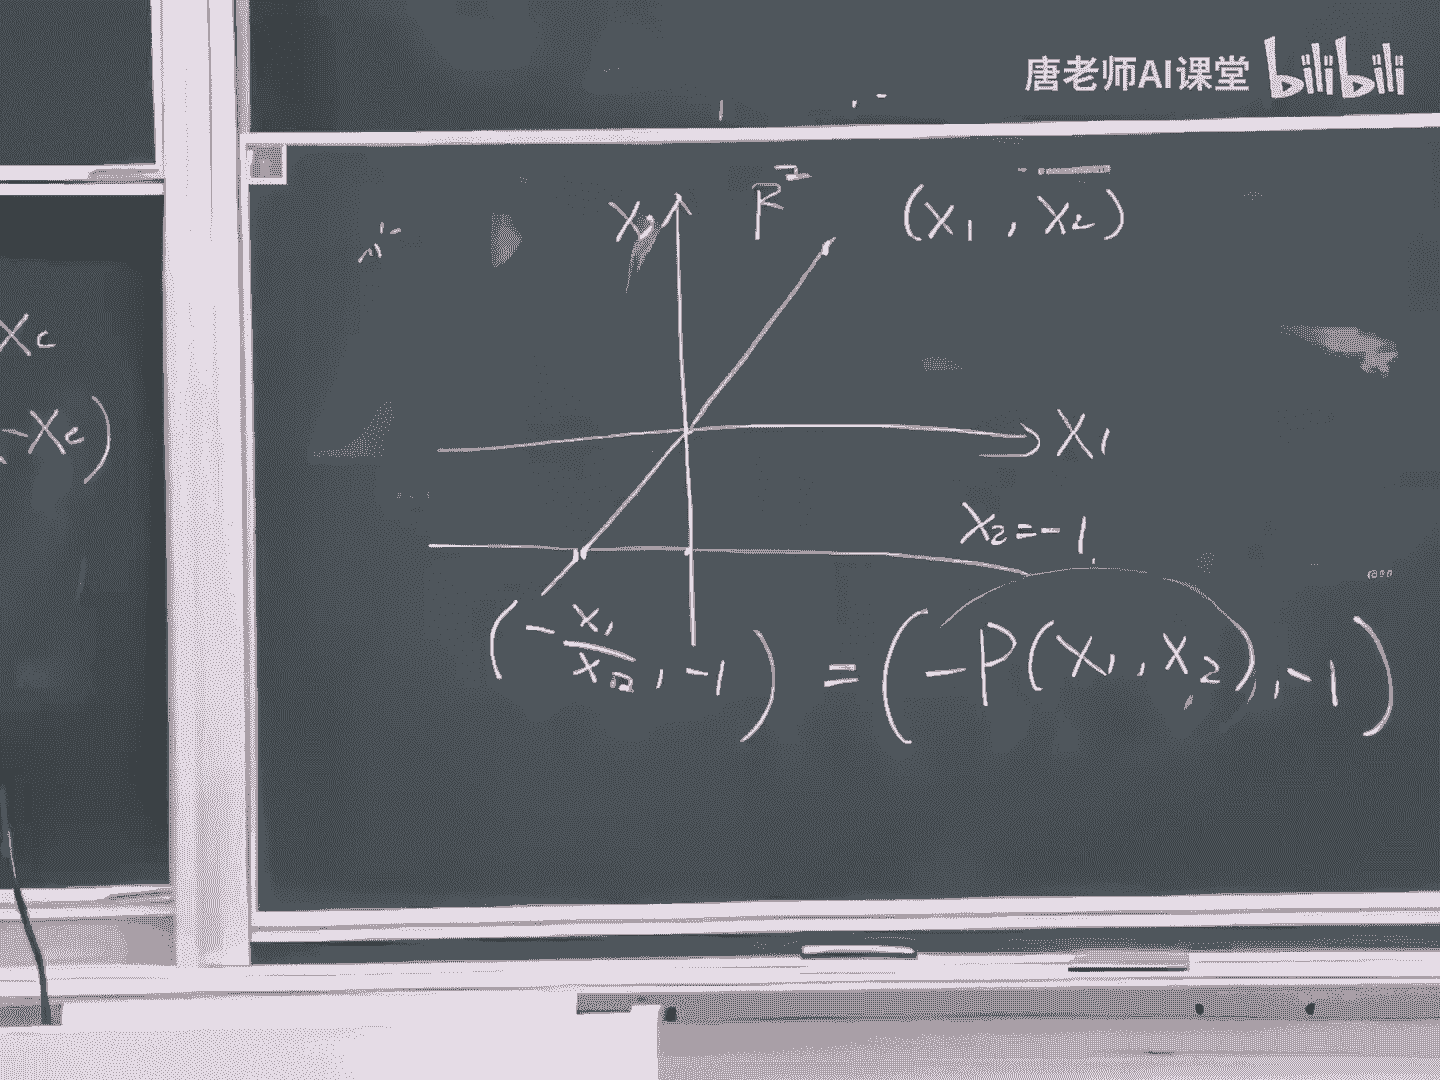 唐老师AI课堂 bilibili
R² (X₁, X₂)
Xc
-Xc)
X₁
X₂=-1
(-X₁/X₂, -1) = (-P(X₁, X₂), -1)